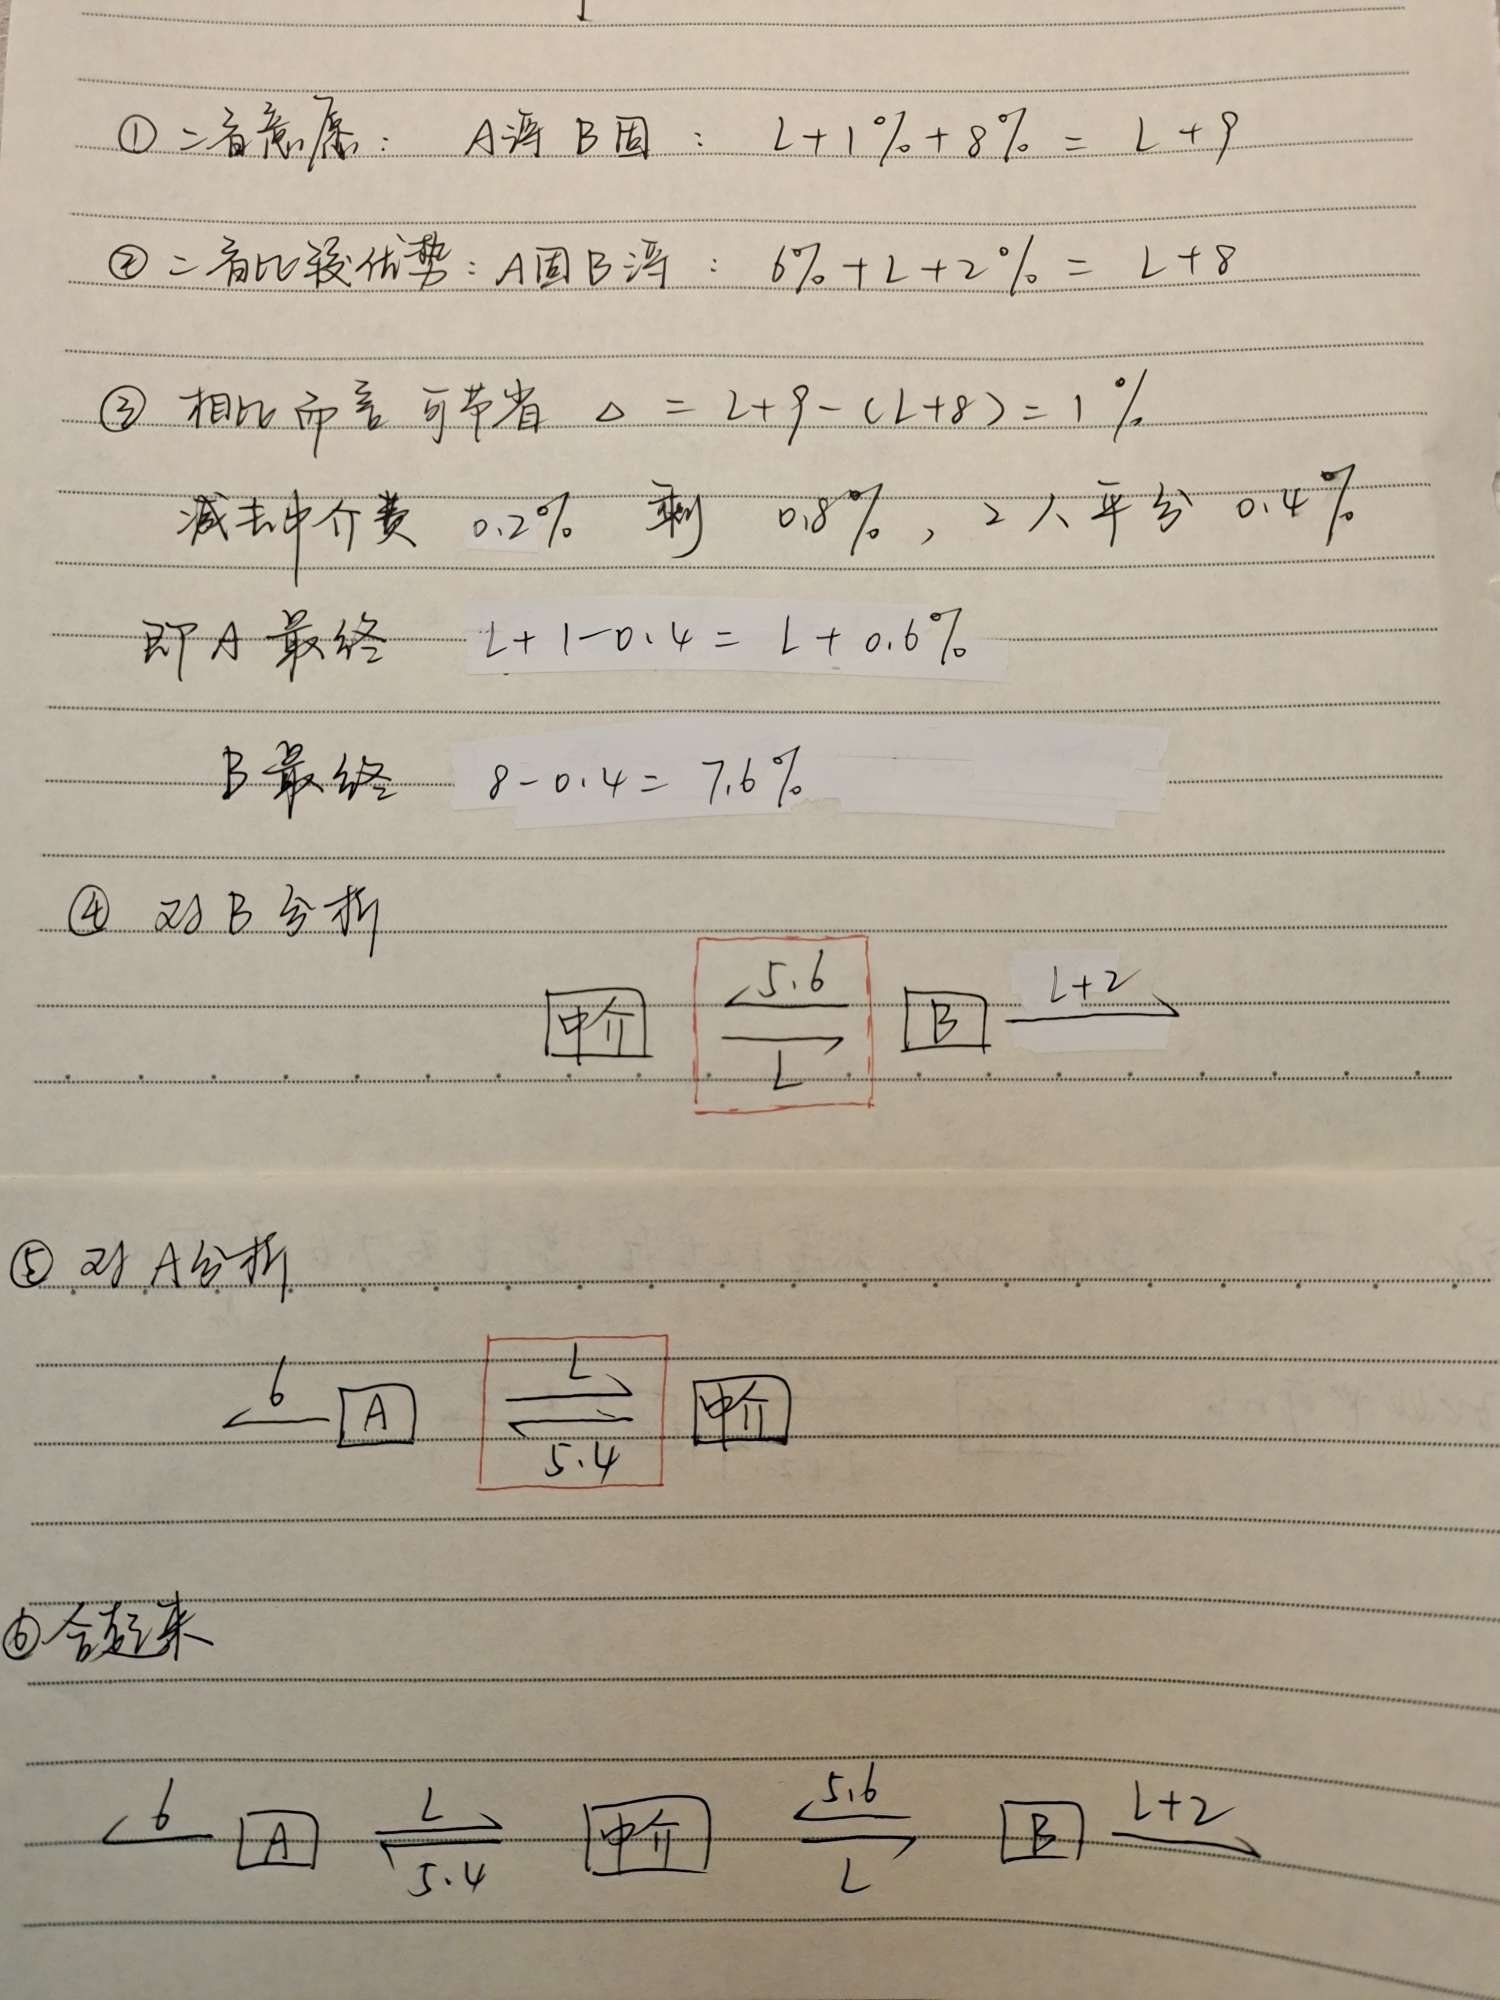 ① 二者意愿： A浮 B固 ： L+1%+8% = L+9
② 二者比较优势：A固B浮 ： 6%+L+2% = L+8
③ 相比而言 可节省 △ = L+9-(L+8)=1%
减去中介费 0.2% 剩 0.8%，2人平分 0.4%
即A最终 L+1-0.4 = L+0.6%
B最终 8-0.4= 7.6%
④ 对B分析
5.6 L+2
中介 B
L
⑤ 对A分析
6 L
A 中介
5.4
⑥合起来
6 L 5.6 L+2
A 中介 B
5.4 L